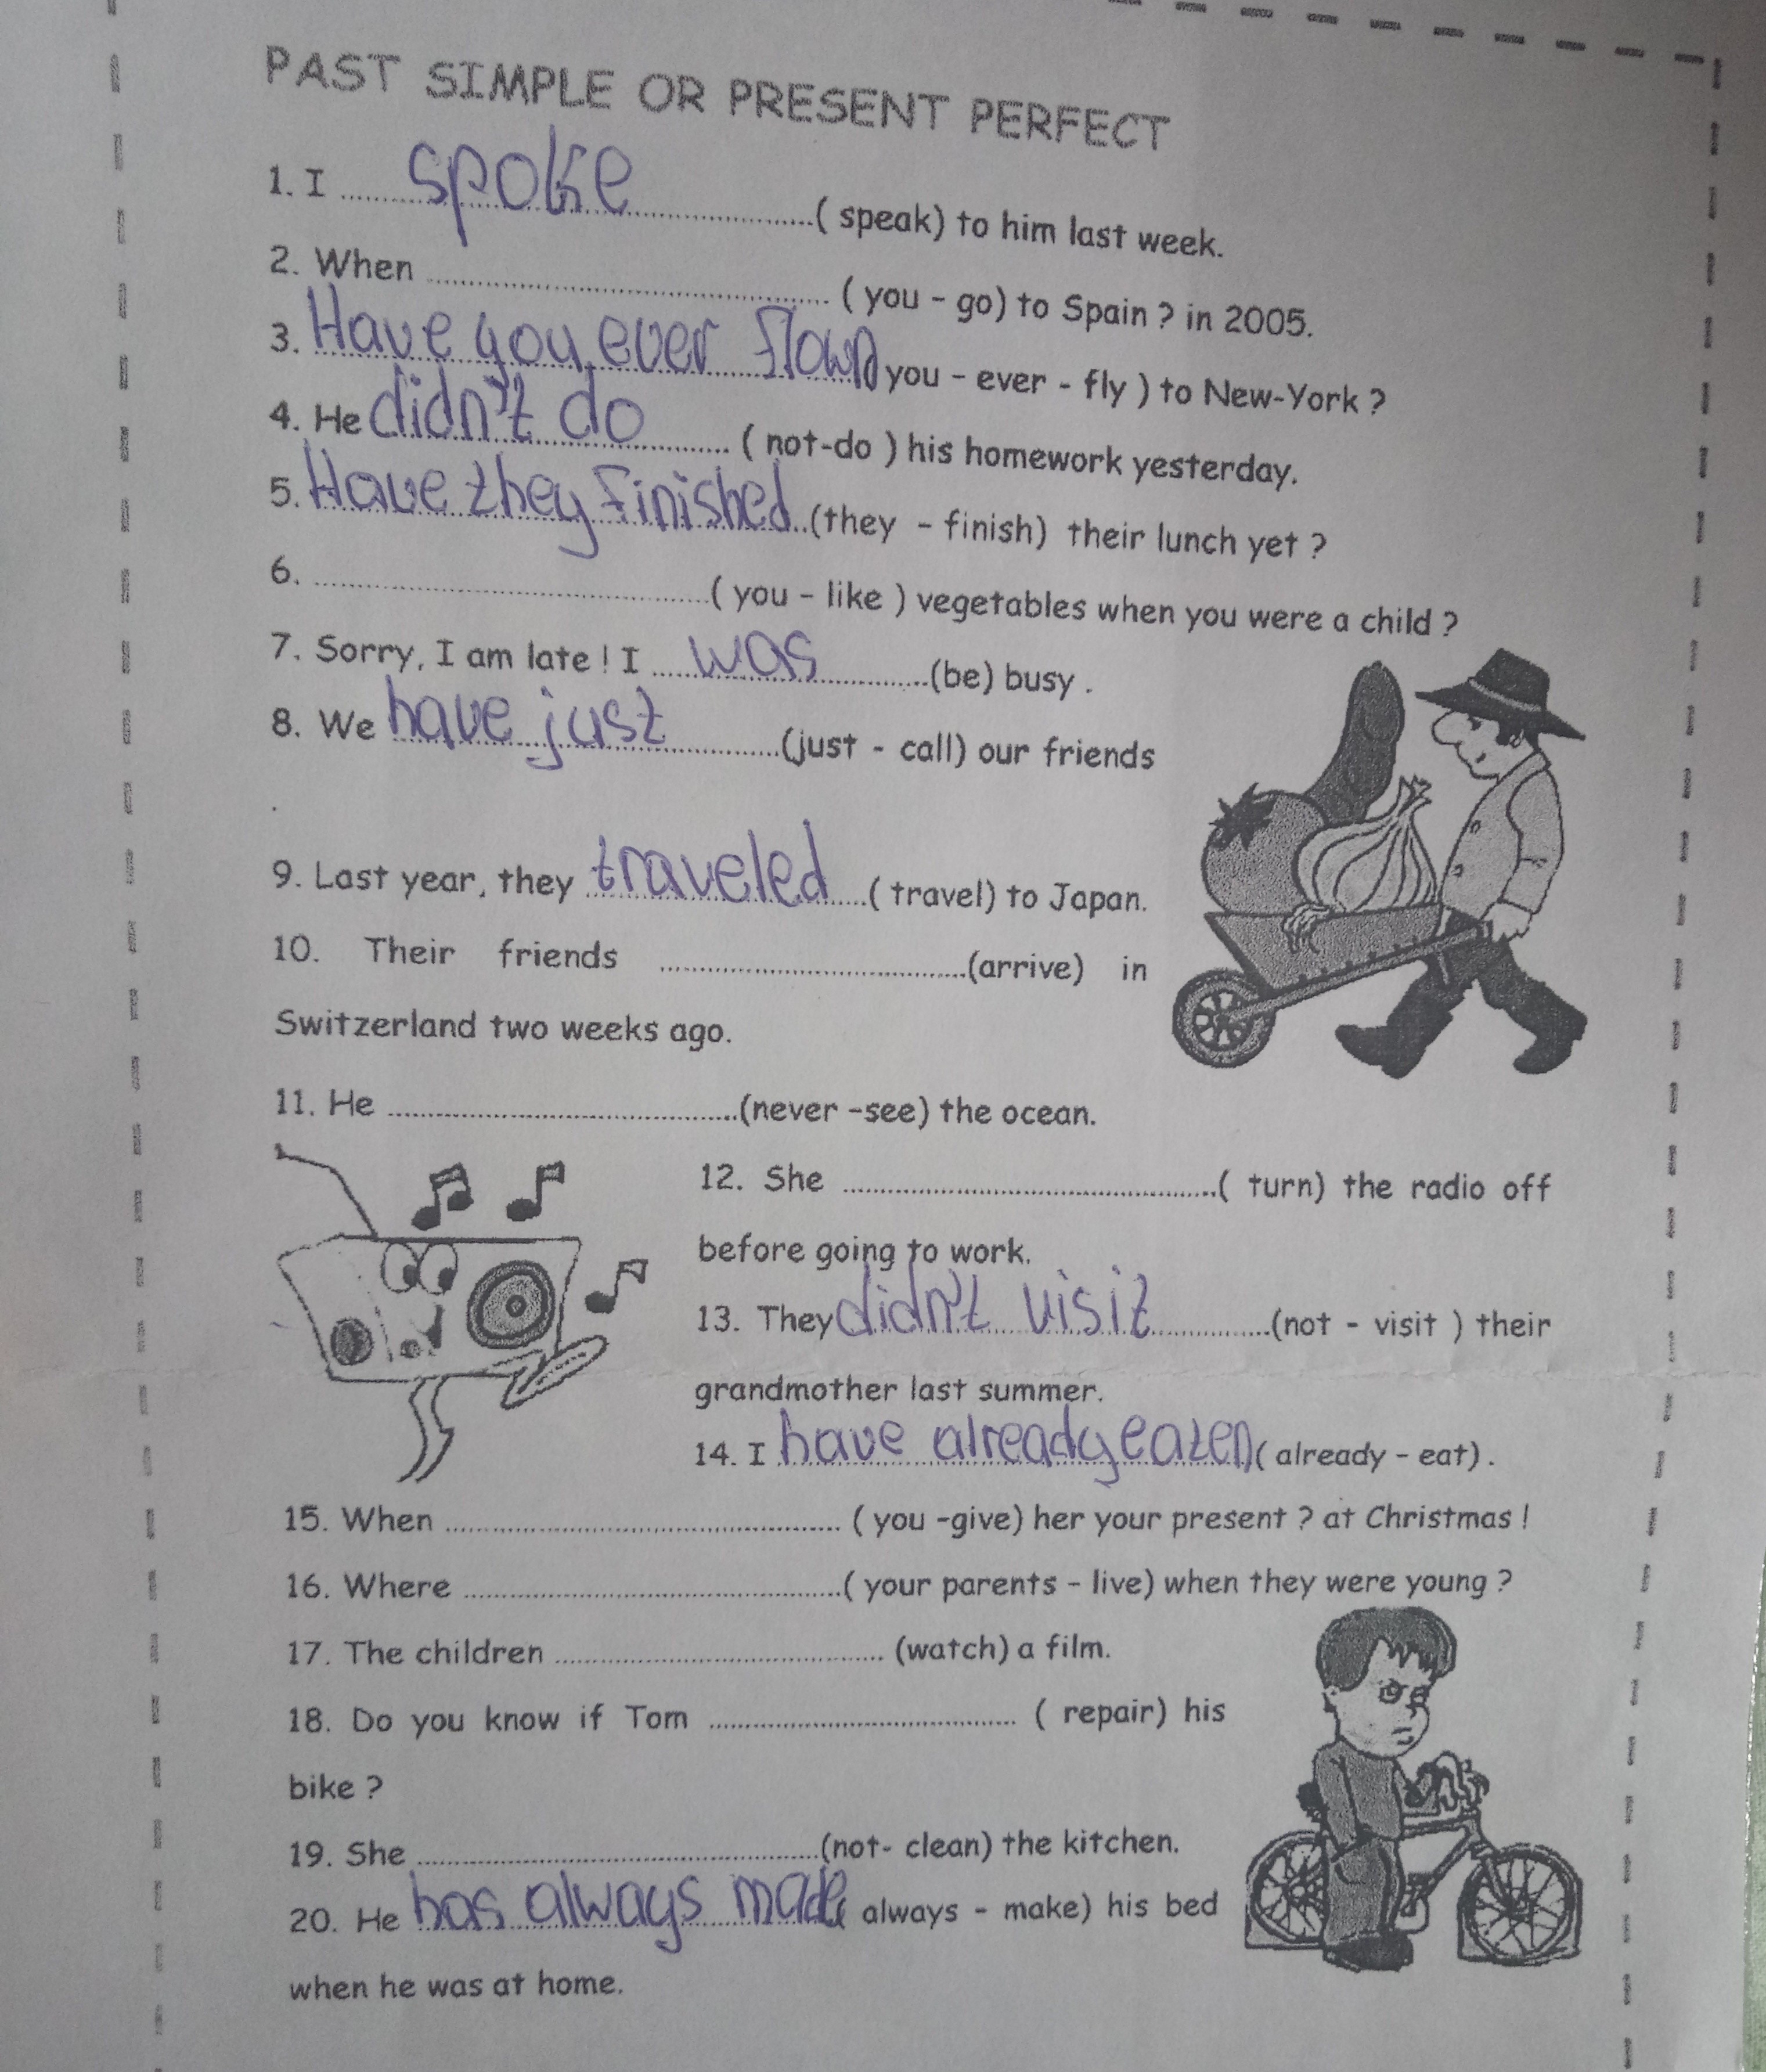 PAST SIMPLE OR PRESENT PERFECT
1. I ....spoke....( speak) to him last week.
2. When .................... ( you - go) to Spain ? in 2005.
3. Have you ever flown you - ever - fly ) to New-York ?
4. He didn't do ........ ( not-do ) his homework yesterday.
5. Have they finished..(they - finish) their lunch yet ?
6. ....................( you - like ) vegetables when you were a child ?
7. Sorry, I am late ! I ...was........(be) busy .
8. We have just ........(just - call) our friends
.
9. Last year, they traveled ...( travel) to Japan.
10. Their friends ....................(arrive) in
Switzerland two weeks ago.
11. He ....................(never -see) the ocean.
12. She ....................( turn) the radio off
before going to work.
13. They didn't visit ........(not - visit ) their
grandmother last summer.
14. I have already eaten ( already - eat) .
15. When .................... ( you -give) her your present ? at Christmas !
16. Where ....................( your parents - live) when they were young ?
17. The children .................... (watch) a film.
18. Do you know if Tom .................... ( repair) his
bike ?
19. She ....................(not- clean) the kitchen.
20. He has always made always - make) his bed
when he was at home.